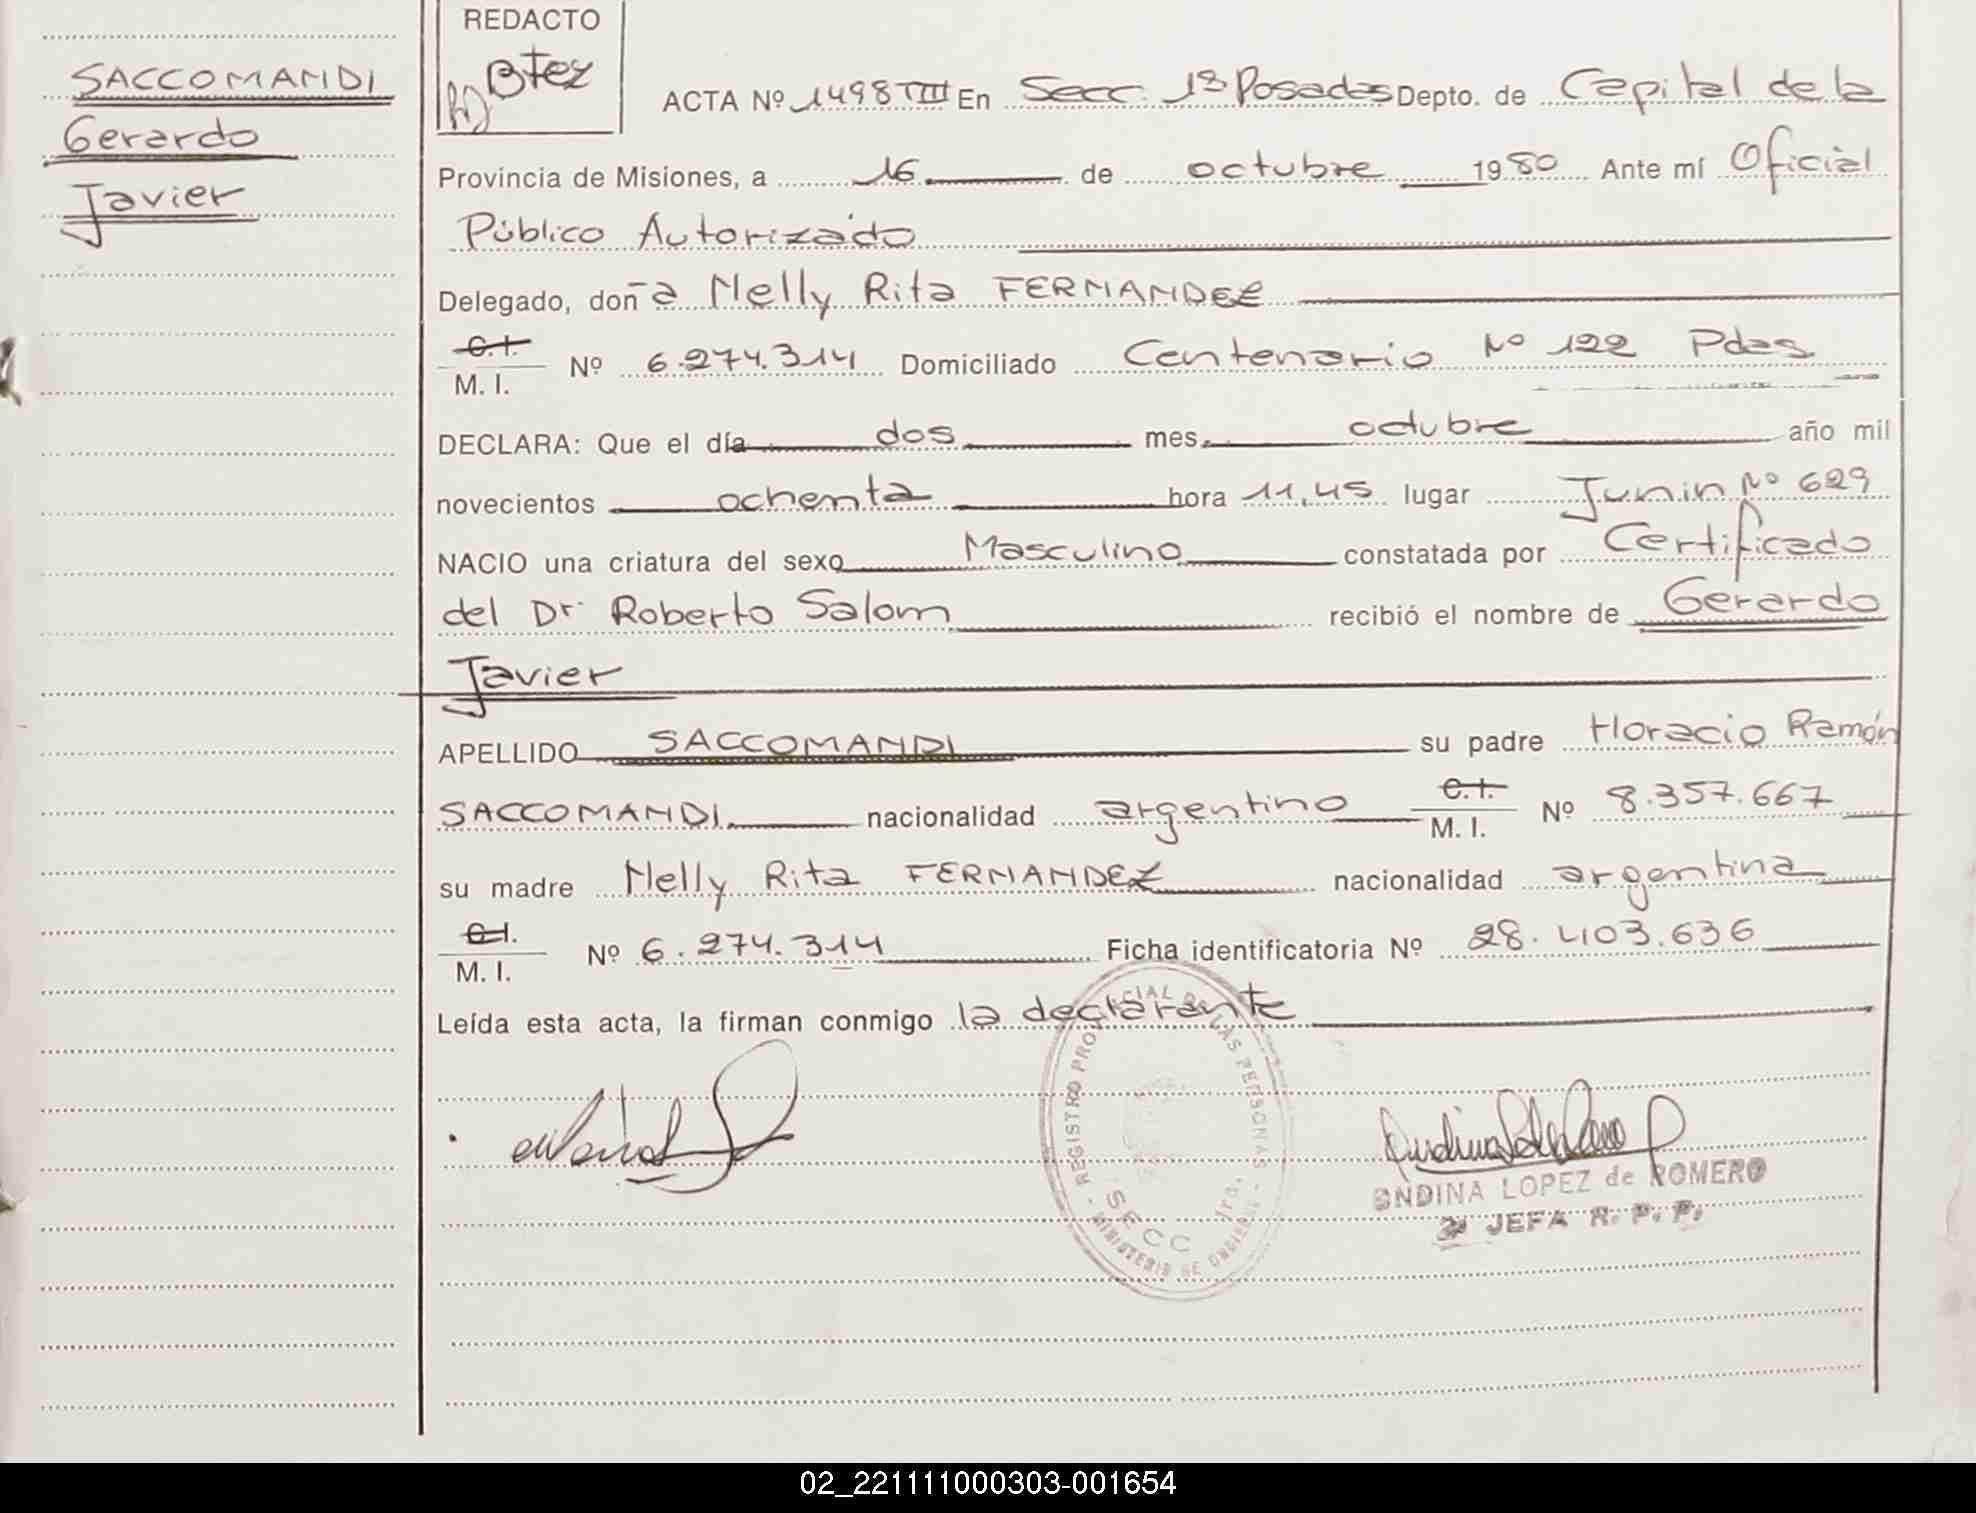 SACCOMANDI
Gerardo
Javier
REDACTO
Btez
ACTA Nº 1498 TIII En Secc. 1ª Posadas Depto. de Capital de la
Provincia de Misiones, a 16 de octubre 1980 Ante mí Oficial
Público Autorizado
Delegado, don a Nelly Rita FERNANDEZ
C.I.
M. I. Nº 6.274.314 Domiciliado Centenario Nº 122 Pdas
DECLARA: Que el día dos mes octubre año mil
novecientos ochenta hora 11,45 lugar Junin Nº 629
NACIO una criatura del sexo Masculino constatada por Certificado
del Dr Roberto Salom recibió el nombre de Gerardo
Javier
APELLIDO SACCOMANDI su padre Horacio Ramón
SACCOMANDI. nacionalidad argentino C.I. M. I. Nº 8.357.667
su madre Nelly Rita FERNANDEZ nacionalidad argentina
C.I.
M. I. Nº 6.274.314 Ficha identificatoria Nº 28.403.636
Leída esta acta, la firman conmigo la declarante
REGISTRO PROVINCIAL DE LAS PERSONAS
SECC 1ra.
MINISTERIO DE GOBIERNO
ONDINA LOPEZ de ROMERO
JEFA R. P. P.
02_221111000303-001654